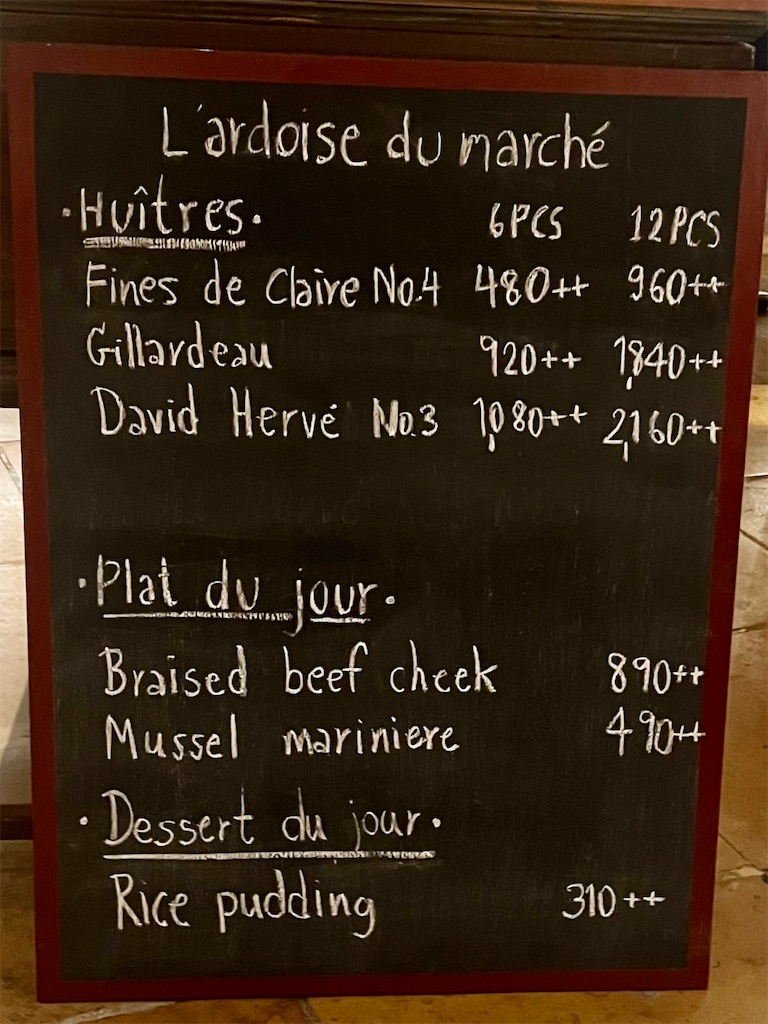 L'ardoise du marché
·Huîtres· 6PCS 12PCS
Fines de Claire No.4 480++ 960++
Gillardeau 920++ 1,840++
David Hervé No.3 1,080++ 2,160++
·Plat du jour·
Braised beef cheek 890++
Mussel mariniere 490++
·Dessert du jour·
Rice pudding 310++